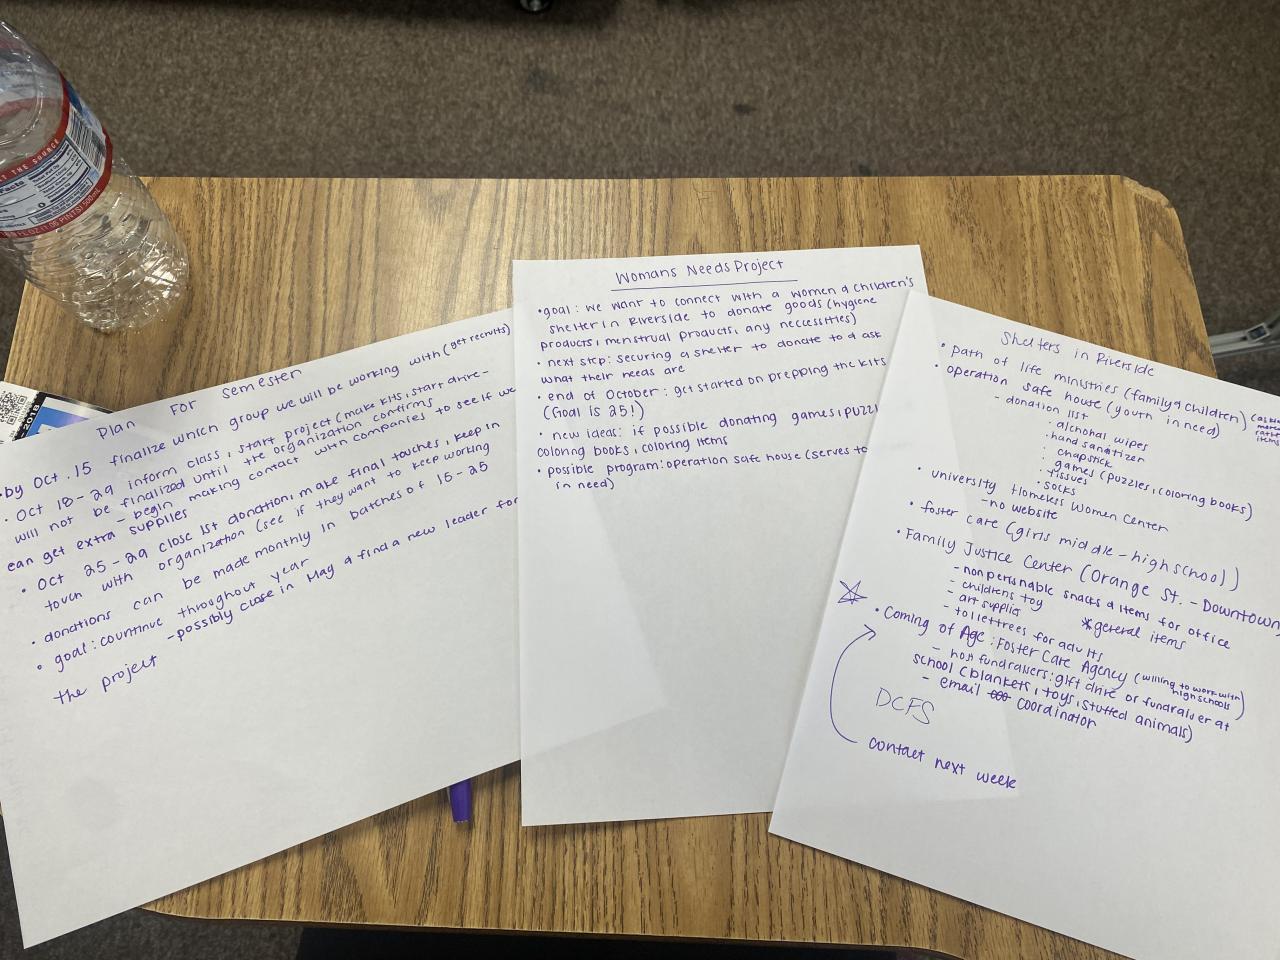 Plan For Semester
•by Oct. 15 finalize which group we will be working with (get recruits)
• Oct 18-29 inform class, start project (make kits, start drive-
will not be finalized until the organization confirms
- begin making contact with companies to see if we
can get extra supplies
• Oct 25-29 close 1st donation, make final touches, keep in
touch with organization (see if they want to keep working
• donations can be made monthly in batches of 15-25
• goal: countinue throughout year
- possibly close in May & find a new leader for
the project
Womans Needs Project
•goal: we want to connect with a women & children's
shelter in Riverside to donate goods (hygiene
products, menstrual products, any neccessities)
• next step: securing a shelter to donate to & ask
what their needs are
• end of October: get started on prepping the kits
(Goal is 25!)
• new ideas: if possible donating games, puzzl
coloring books, coloring items
• possible program: operation safe house (serves to
in need)
Shelters in Riverside
• path of life ministries (family & children)
• operation safe house (youth in need)
- donation list
• alchohal wipes
• hand sanatizer
• chapstick
• games (puzzles, coloring books)
• tissues
• socks
• university Homeless Women Center
- no website
• foster care (girls middle-high school)
• Family Justice Center (Orange St. - Downtown
- nonpersnable snacks & items for office
- childrens toy
- art supplies *general items
- toilettrees for adults
• Coming of Age: Foster Care Agency (willing to work with
high schools)
- host fundraisers: gift drive or fundraiser at
school (blankets, toys, stuffed animals)
- email coordinator
DCFS
contact next week
AT THE SOURCE
Facts
2018